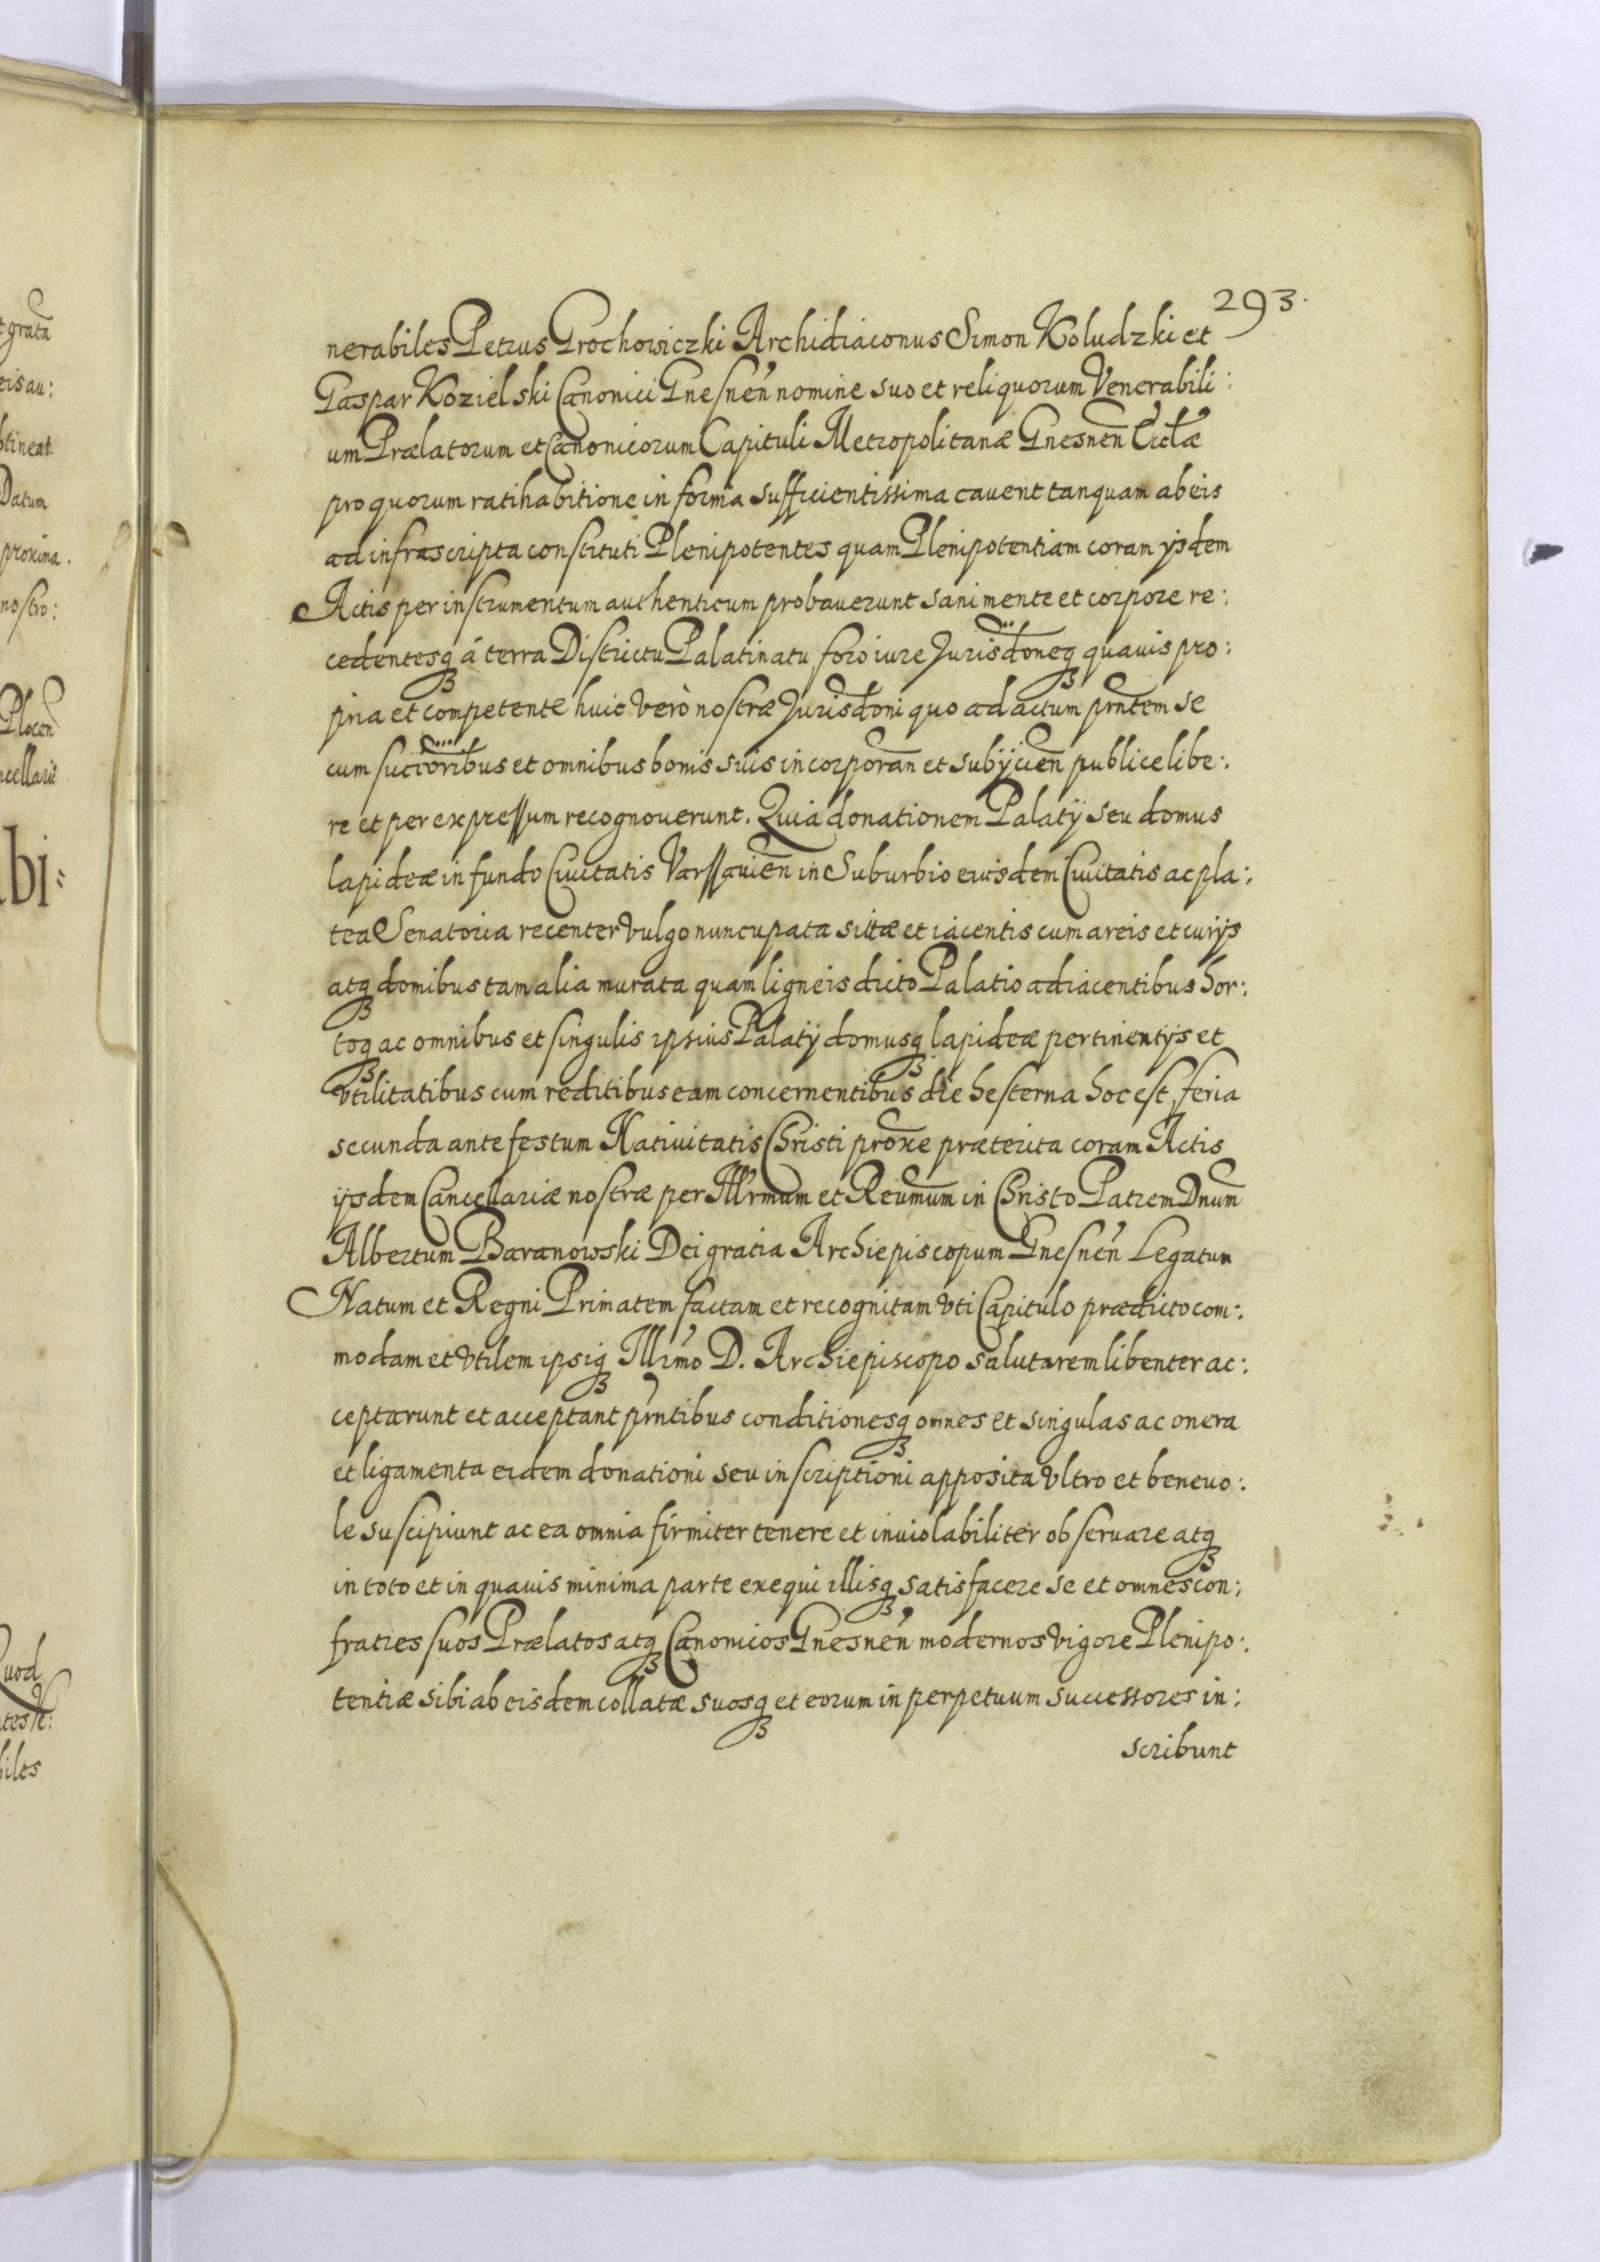 293.
nerabiles Petrus Grochowiczki Archidiaconus Simon Koludzki et
Gaspar Kozielski Canonici Gnesnen̄ nomine suo et reliquorum Venerabili:
um Prælatorum et Canonicorum Capituli Metropolitanæ Gnesnen̄ Eccl̄æ
pro quorum ratihabitione in forma sufficientissima cavent tanquam ab eis
ad infrascripta constituti Plenipotentes quam Plenipotentiam coram ijsdem
Actis per instrumentum authenticum probaverunt sani mente et corpore re:
cedentesqꝫ á terra Districtu Palatinatu foro iure Jurisdōneqꝫ quavis pro:
pria et competente huic verò nostræ Jurisdōni quo ad actum prn̄tem se
cum succōribus et omnibus bonis suis incorporan̄ et subijcien̄ publice libe:
re et per expressum recognoverunt. Quia donationem Palatij seu domus
lapideæ in fundo Civitatis Varssavien̄ in Suburbio eiusdem Civitatis ac pla:
tea Senatoria recenter vulgo nuncupata sittæ et iacentis cum areis et curijs
atqꝫ domibus tam alia murata quam ligneis dicto Palatio adiacentibus hor:
toqꝫ ac omnibus et singulis ipsius Palatij domusqꝫ lapideæ pertinentijs et
vtilitatibus cum reditibus eam concernentibus die hesterna hoc est feria
secunda ante festum Nativitatis Christi prox̄e præterita coram Actis
ijsdem Cancellariæ nostræ per Illr̄mum et Reūmum in Christo Patrem Dn̄um
Albertum Baranowski Dei gratia Archiepiscopum Gnesnen̄ Legatum
Natum et Regni Primatem factam et recognitam vti Capitulo prædicto com:
modam et vtilem ipsiqꝫ Illr̄mo D. Archiepiscopo salutarem libenter ac:
ceptarunt et acceptant prn̄tibus conditionesqꝫ omnes et singulas ac onera
et ligamenta eidem donationi seu inscriptioni apposita vltro et benevo:
le suscipiunt ac ea omnia firmiter tenere et inviolabiliter observare atqꝫ
in toto et in quavis minima parte exequi illisqꝫ satisfacere se et omnes con:
fratres suos Prælatos atqꝫ Canonicos Gnesnen̄ modernos vigore Plenipo:
tentiæ sibi ab eisdem collatæ suosqꝫ et eorum in perpetuum successores in:
scribunt